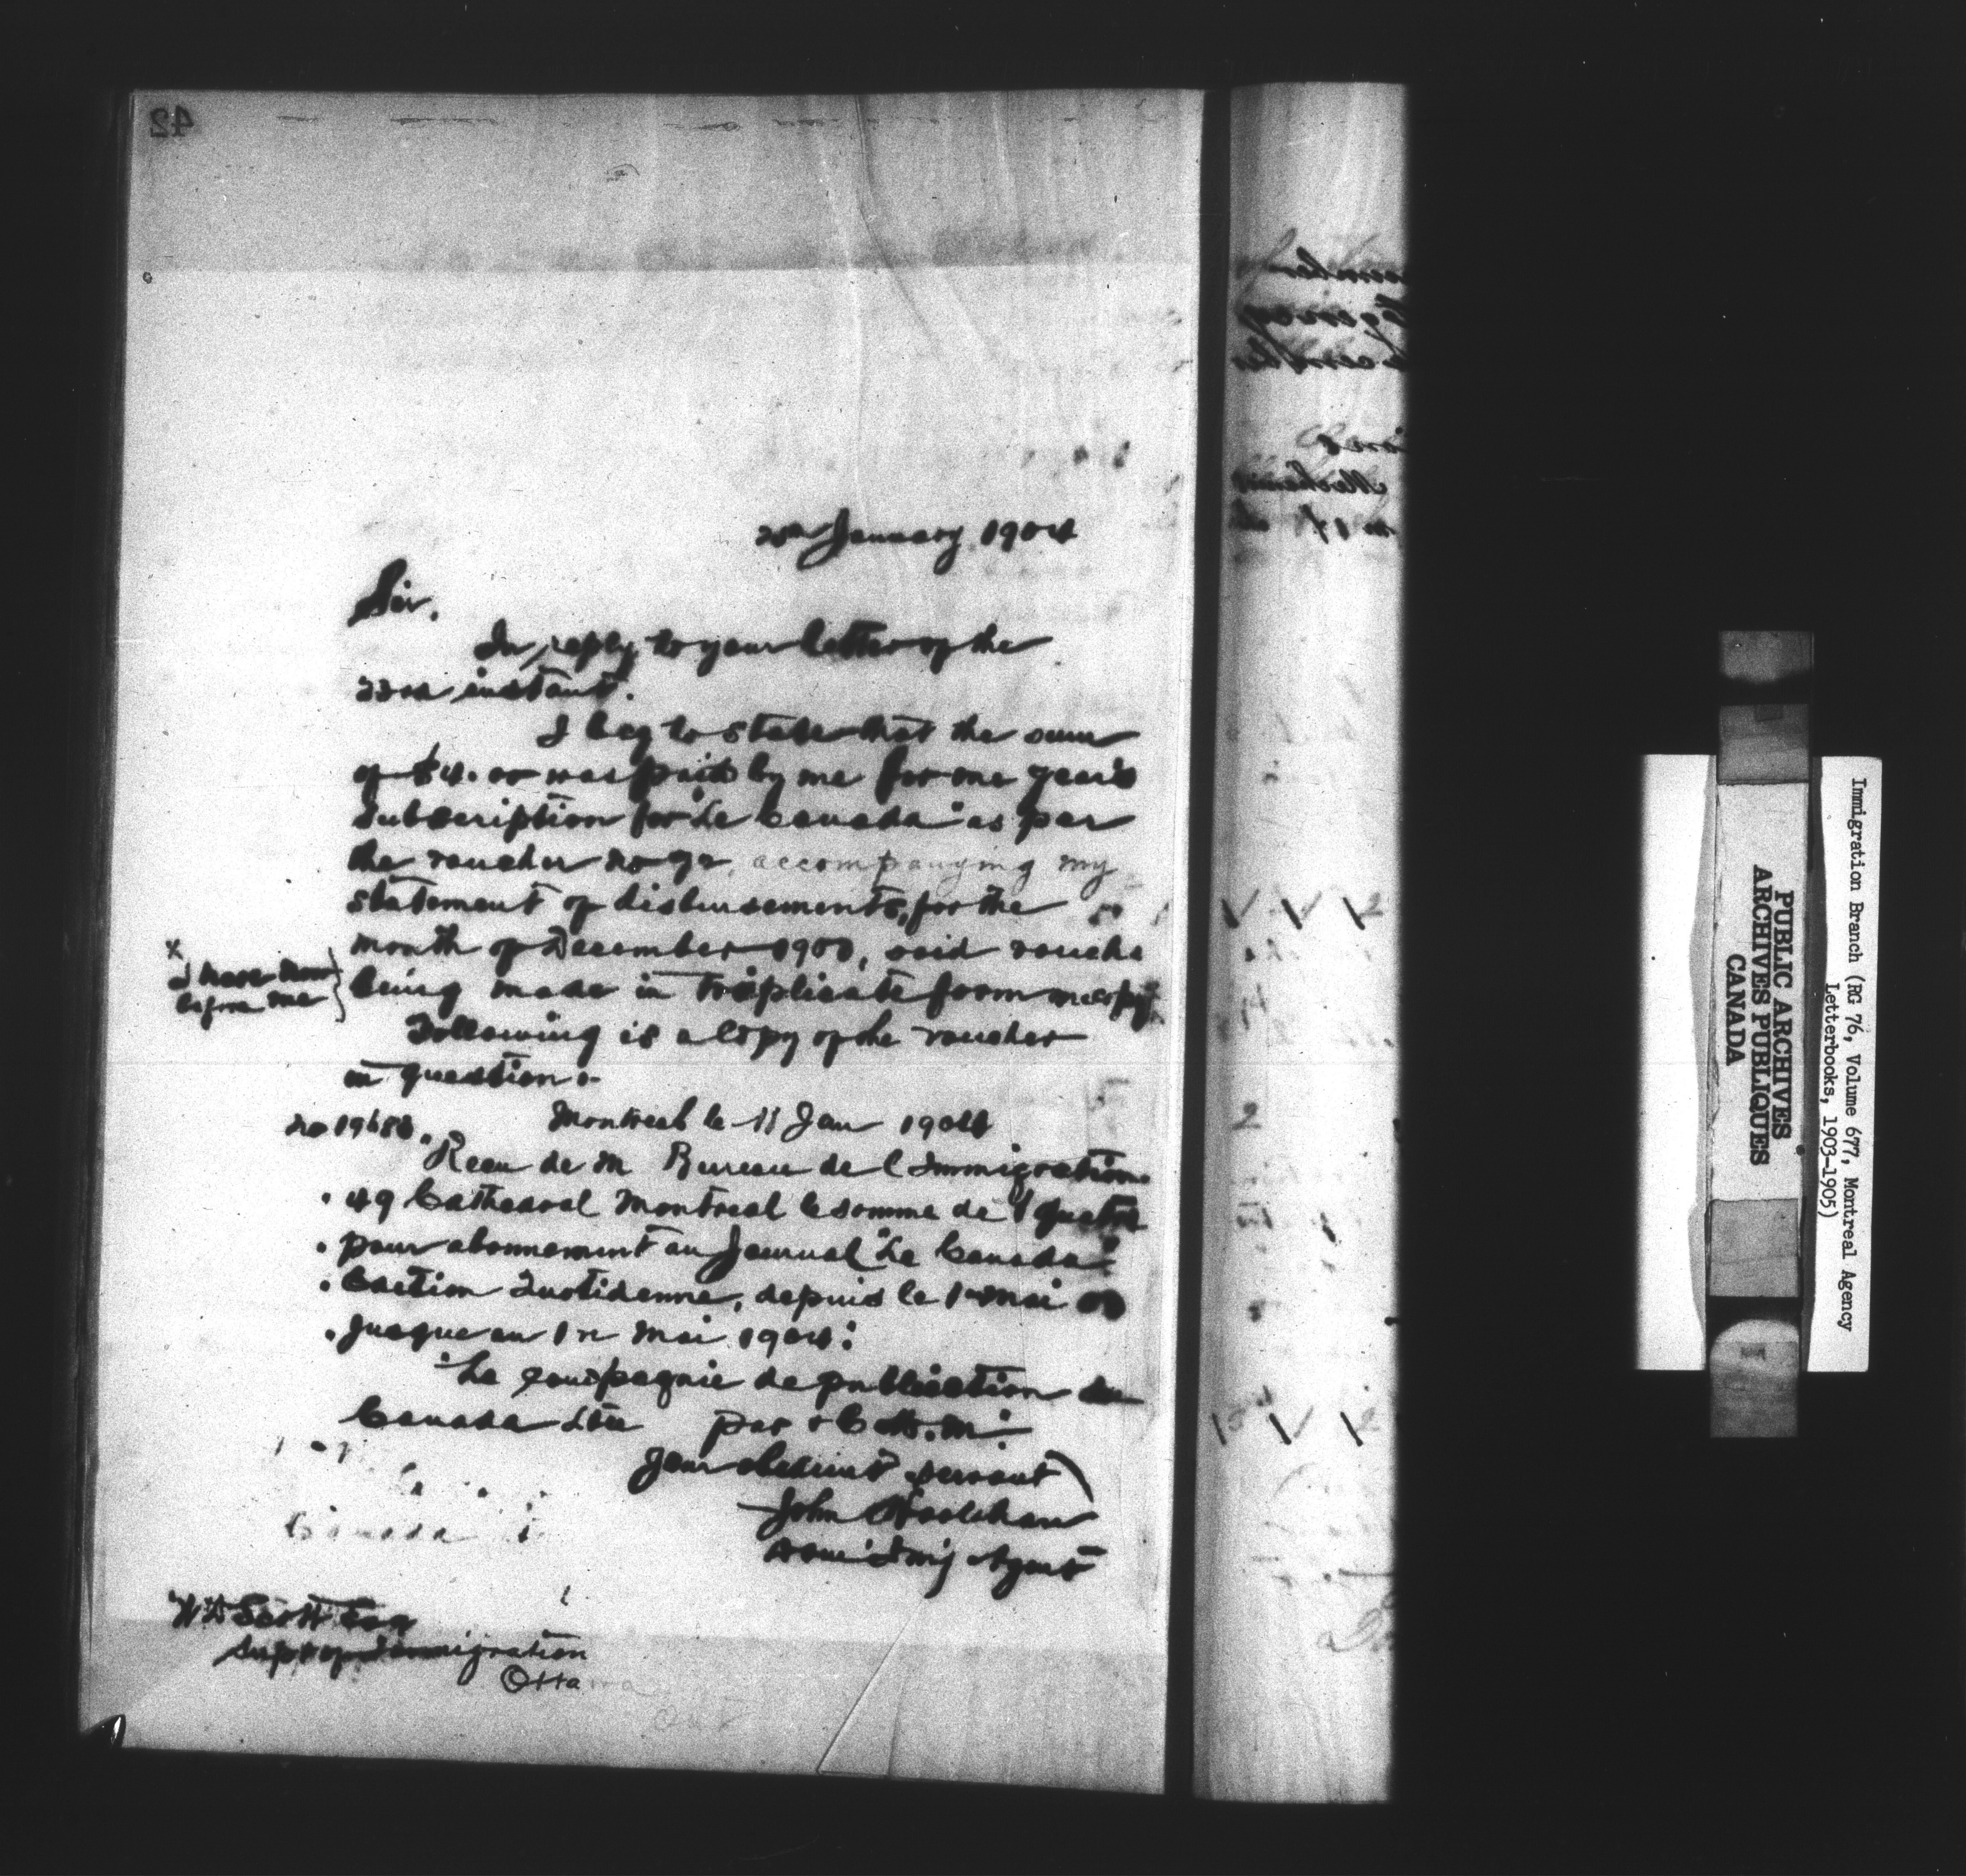 42
January 1904
Sir.
In reply to your letter of the
23rd instant.
I beg to state that the sum
of $4.00 was paid by me for one year's
Subscription for "Le Canada" as per
the voucher No 72 accompanying my
statement of disbursements, for the
month of December 1903, said vouche
x
I have now
before me
being made in triplicate form
Following is a copy of the voucher
in question.-
No 19658. Montreal le 11 Jan 1904
"Recu de M Bureau de l Immigration
" 49 Cathedral Montreal la somme de $ quatre
" pour abonnement au Journal "Le Canada"
" Edition Quotidenne, depuis le 1er Mai 03
" Jusque au 1er Mai 1904."
"La Compagnie de publication du
Canada Ltee par
Your obedient servant
John Hoolahan
Dom' Imig Agent
Canada
W D Scott Esq
Supt of Immigration
Ottawa
Immigration Branch (RG 76, Volume 677, Montreal Agency
Letterbooks, 1903-1905)
PUBLIC ARCHIVES
ARCHIVES PUBLIQUES
CANADA